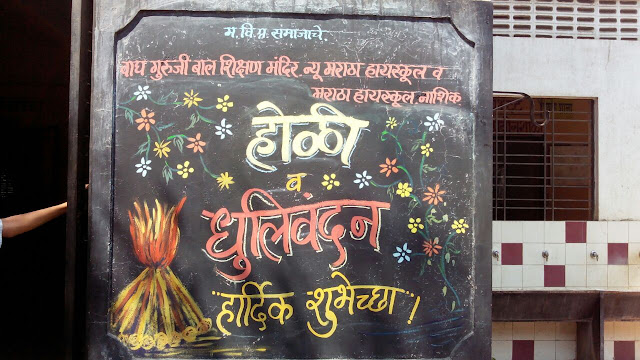 म.वि.प्र.समाजाचे
वाघ गुरुजी बाल शिक्षण मंदिर न्यू मराठा हायस्कूल व
मराठा हायस्कूल नाशिक
होळी
व
धुलिवंदन
हार्दिक शुभेच्छा !